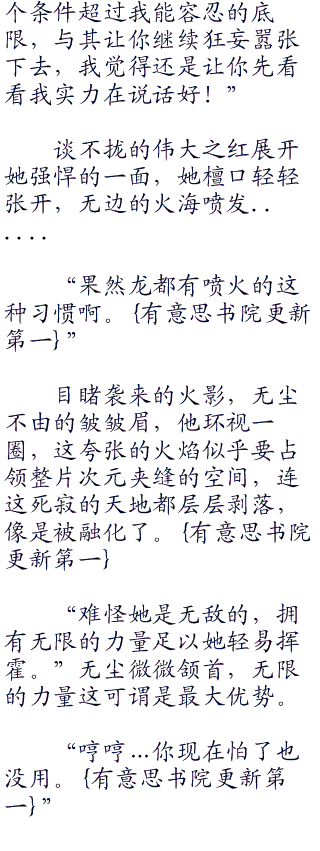 个条件超过我能容忍的底
限，与其让你继续狂妄嚣张
下去，我觉得还是让你先看
看我实力在说话好！”
谈不拢的伟大之红展开
她强悍的一面，她檀口轻轻
张开，无边的火海喷发. .
. . . .
“果然龙都有喷火的这
种习惯啊。{有意思书院更新
第一}”
目睹袭来的火影，无尘
不由的皱皱眉，他环视一
圈，这夸张的火焰似乎要占
领整片次元夹缝的空间，连
这死寂的天地都层层剥落，
像是被融化了。{有意思书院
更新第一}
“难怪她是无敌的，拥
有无限的力量足以她轻易挥
霍。”无尘微微颔首，无限
的力量这可谓是最大优势。
“哼哼...你现在怕了也
没用。{有意思书院更新第
一}”